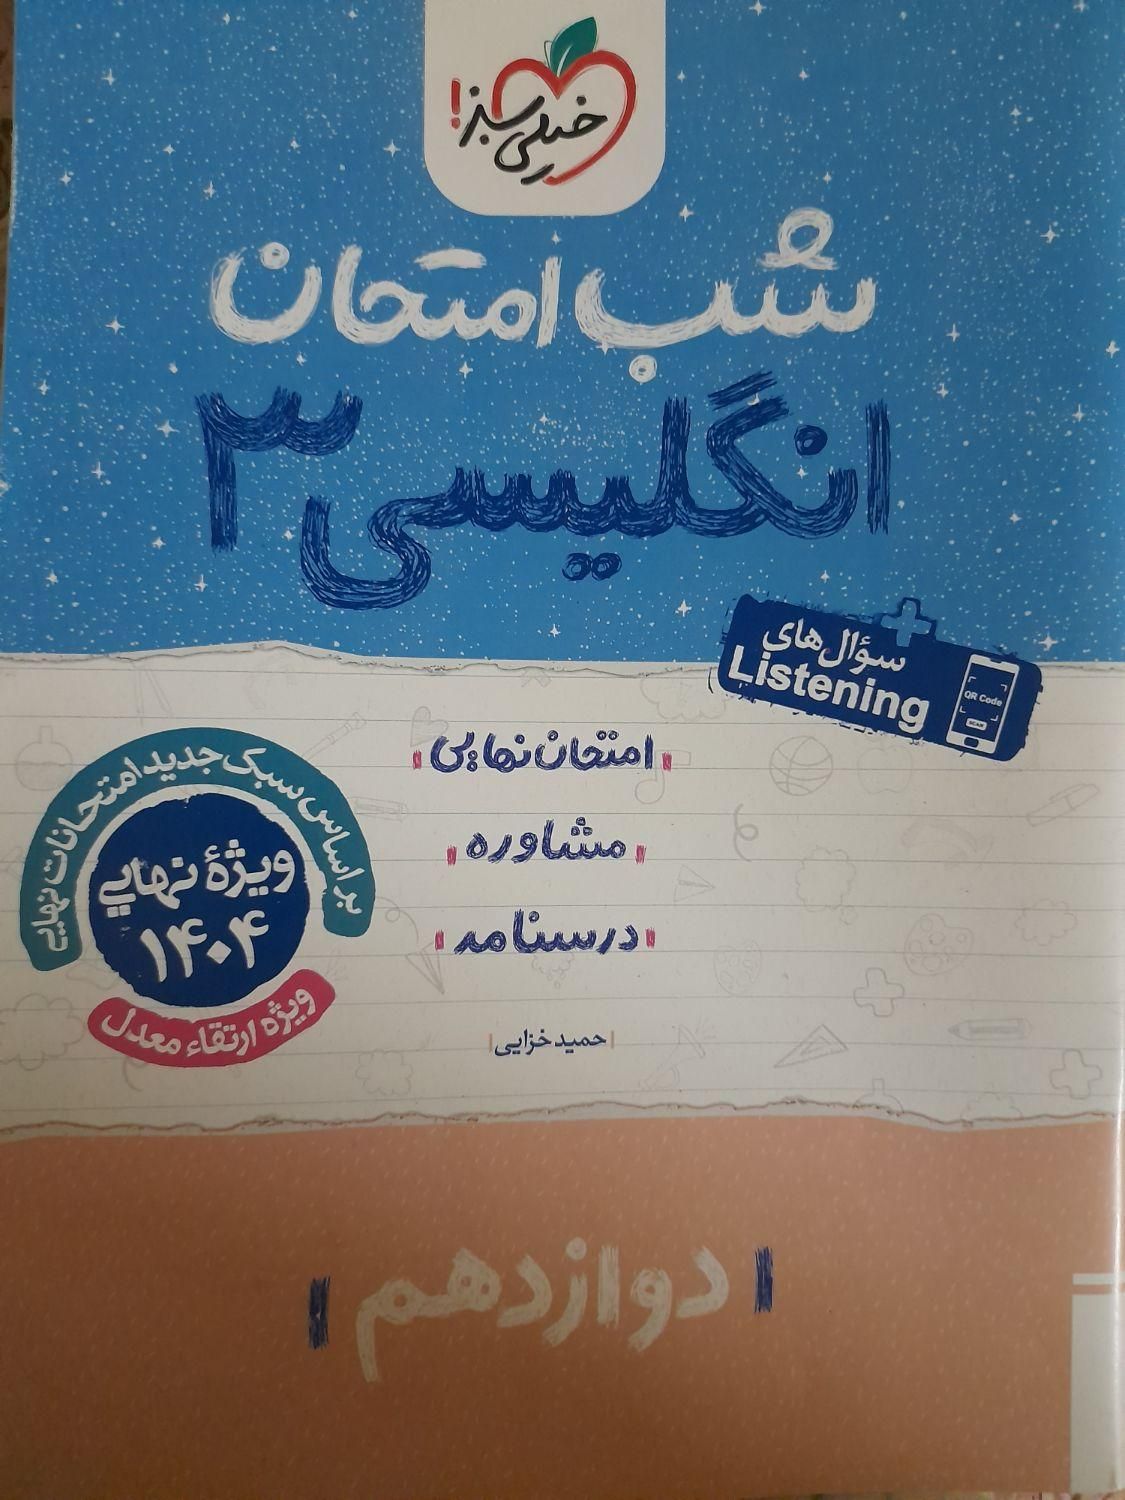 خیلی سبز!
شب امتحان
انگلیسی ۳
+
سؤال‌های
Listening
QR Code
SCAN
امتحان نهایی
مشاوره
درسنامه
بر اساس سبک جدید امتحانات نهایی
ویژهٔ نهایی
۱۴۰۴
ویژه ارتقاء معدل
حمید خزایی
دوازدهم